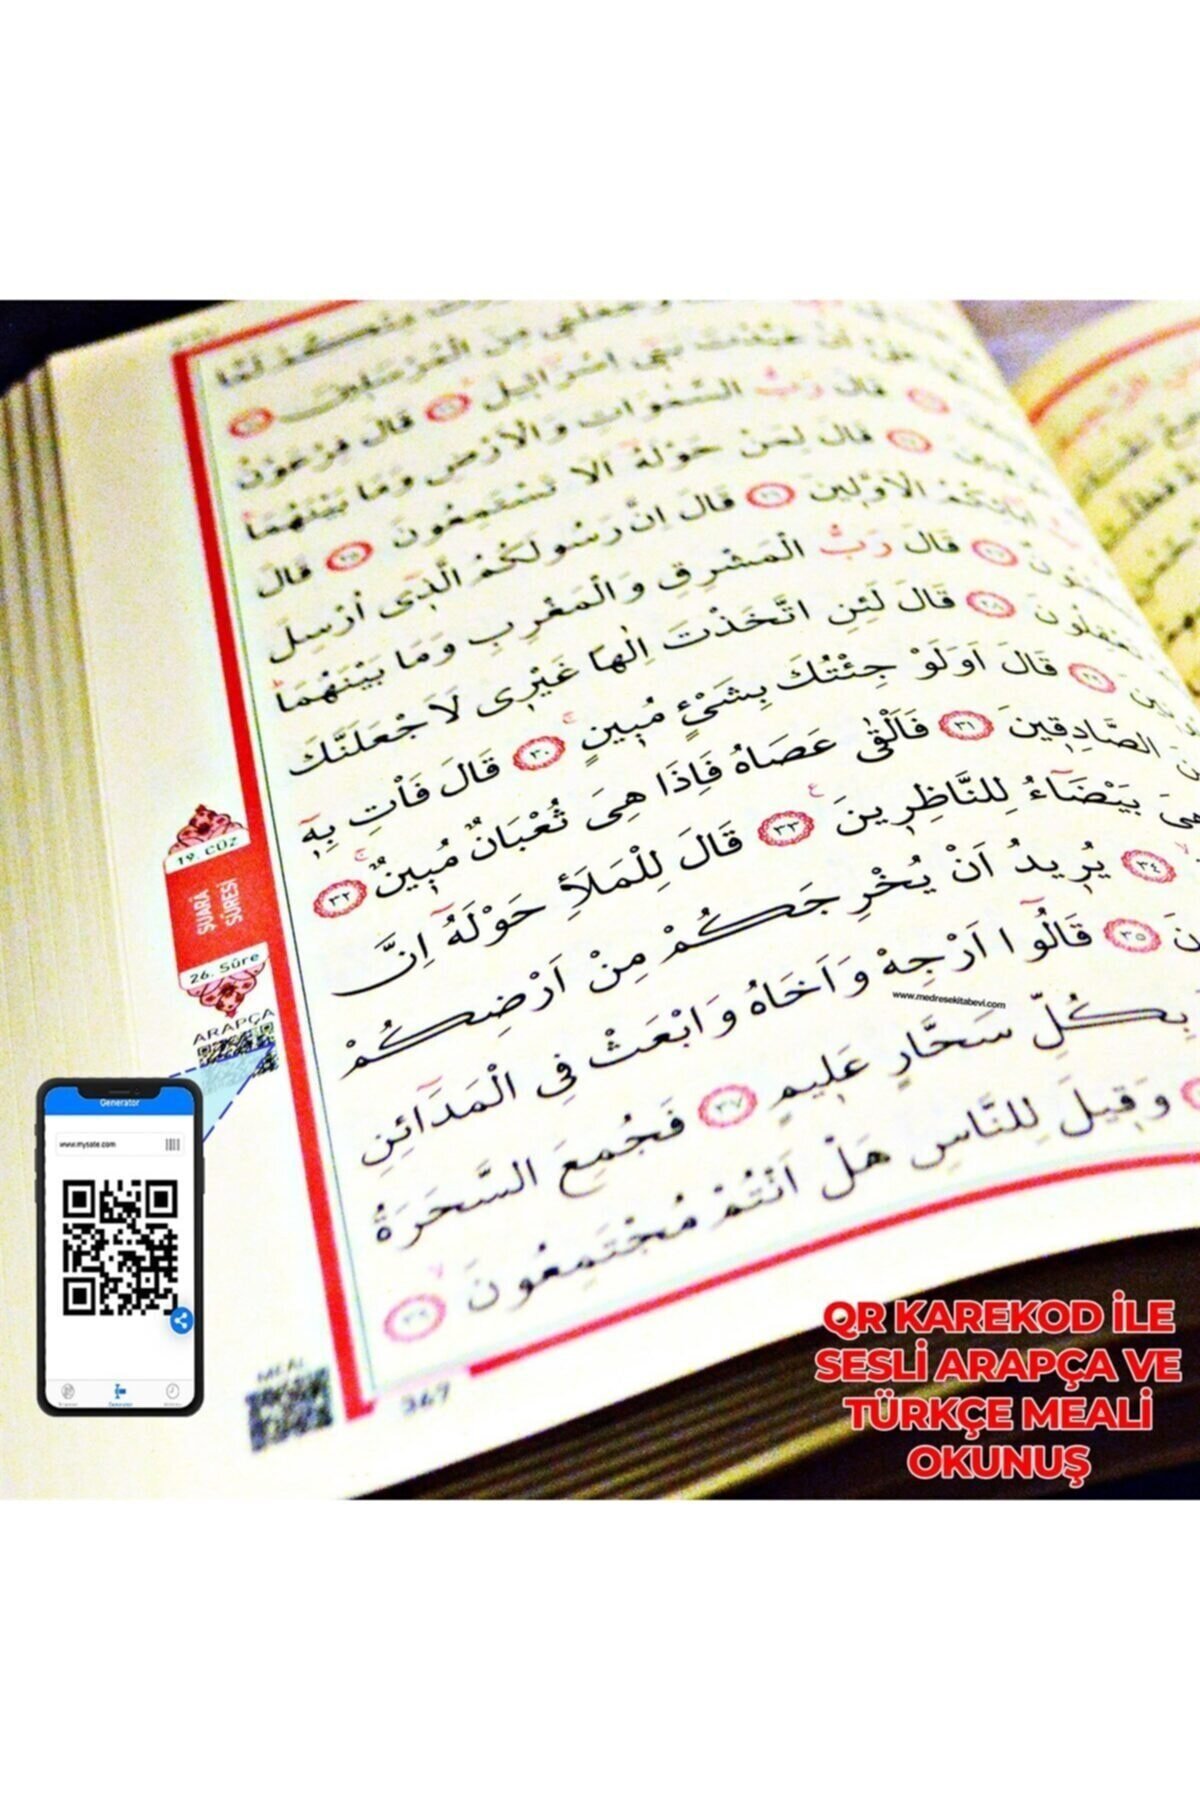 بَعْدُ لَمَّا
وَجَعَلَنِي مِنَ الْمُرْسَلِينَ
عَلَيَّ اَنْ عَبَّدْتَ بَنِي اِسْرَائِيلَ ﴿٢٢﴾ قَالَ فِرْعَوْنُ
قَالَ رَبُّ السَّمٰوَاتِ وَالْاَرْضِ وَمَا بَيْنَهُمَا
قَالَ لِمَنْ حَوْلَهُٓ اَلَا تَسْتَمِعُونَ ﴿٢٥﴾ قَالَ
اٰبَائِكُمُ الْاَوَّلِينَ ﴿٢٦﴾ قَالَ اِنَّ رَسُولَكُمُ الَّذِٓي اُرْسِلَ
قَالَ رَبُّ الْمَشْرِقِ وَالْمَغْرِبِ وَمَا بَيْنَهُمَا
تَعْقِلُونَ ﴿٢٨﴾ قَالَ لَئِنِ اتَّخَذْتَ اِلٰهًا غَيْرِي لَاَجْعَلَنَّكَ
﴿٢٩﴾ قَالَ اَوَلَوْ جِئْتُكَ بِشَيْءٍ مُبِينٍ ﴿٣٠﴾ قَالَ فَأْتِ بِهِٓ
الصَّادِقِينَ ﴿٣١﴾ فَاَلْقٰى عَصَاهُ فَاِذَا هِيَ ثُعْبَانٌ مُبِينٌ ﴿٣٢﴾
هِيَ بَيْضَٓاءُ لِلنَّاظِرِينَ ﴿٣٣﴾ قَالَ لِلْمَلَاِ حَوْلَهُٓ اِنَّ
﴿٣٤﴾ يُرِيدُ اَنْ يُخْرِجَكُمْ مِنْ اَرْضِكُمْ
﴿٣٥﴾ قَالُٓوا اَرْجِهْ وَاَخَاهُ وَابْعَثْ فِي الْمَدَٓائِنِ
بِكُلِّ سَحَّارٍ عَلِيمٍ ﴿٣٧﴾ فَجُمِعَ السَّحَرَةُ
وَقِيلَ لِلنَّاسِ هَلْ اَنْتُمْ مُجْتَمِعُونَ ﴿٣٩﴾
19. CÜZ
ŞUARÂ
SÛRESİ
26. Sûre
ARAPÇA
www.medresekitabevi.com
Generator
www.mysate.com
Generator
MEAL
367
QR KAREKOD İLE
SESLİ ARAPÇA VE
TÜRKÇE MEALİ
OKUNUŞ